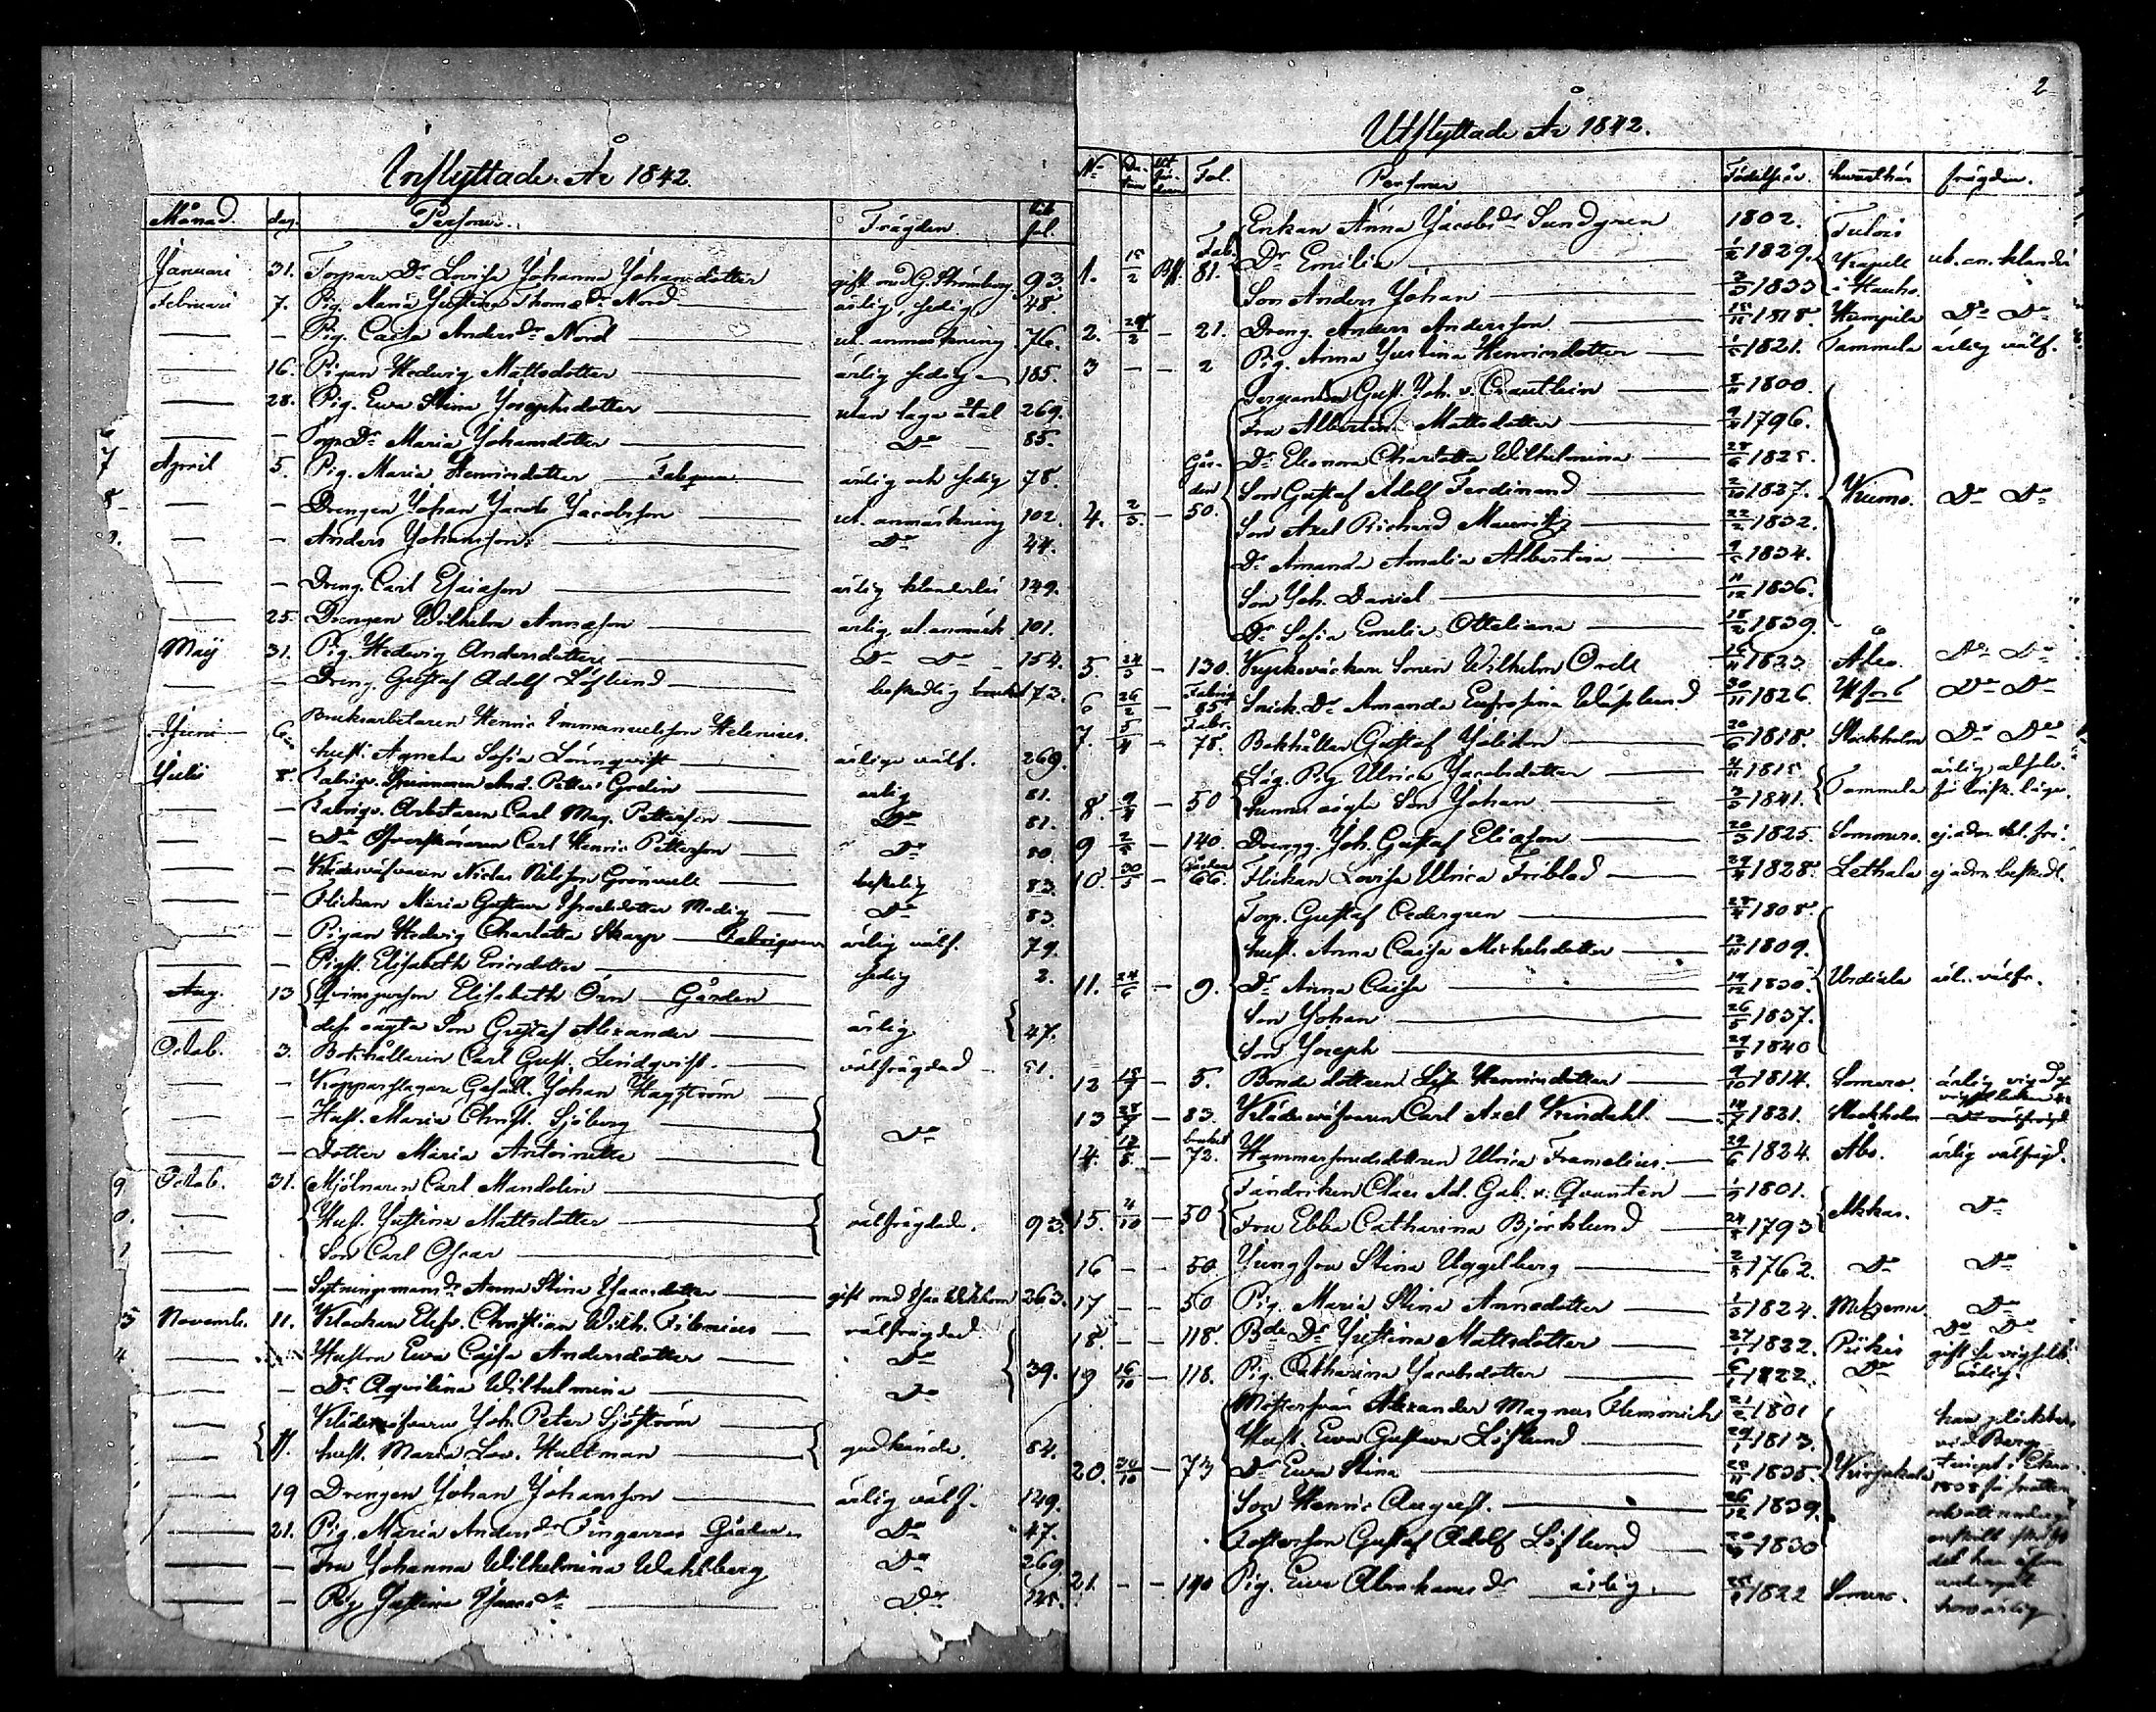 Inflyttade År 1842.
Månad. dag. Person. Frägden fol.
Januari 31. Torpare Dr Lovisa Johanna Johansdotter gift med G. Strömberg 93.
Februari 7. Pig. Maria Justina Thomædr Nord ärlig, sedig 48.
— — Pig. Caisa Andersdr Nord ut. anmärkning 76.
— 16. Pigan Hedvig Mattsdotter ärlig sedig 185.
— 28. Pig. Ewa Stina Josephsdotter utan laga åtal 269.
— — Torp. Dr Maria Johansdotter Do 85.
7 April 5. Pig. Maria Henricsdotter Fabriquen ärlig och sedig 78.
8 — — Drengen Johan Jacob Jacobsson ut. anmärkning 102.
— — Anders Johansson Do 44.
— — Dreng. Carl Esaiasson ärlig klanderlös 149.
— 25. Drengen Wilhelm Annæson ärlig ut. anmärk 101.
Maij 31. Pig. Hedvig Andersdotter Do Do 154.
— — Dreng. Gustaf Adolf Löflund beskedlig bruket 73.
Juni 6. Bruksarbetaren Henric Immanuelsson Helenius.
hust. Agneta Sofia Lönnqvist ärliga välf. 269.
Julii 8. Fabriqs. Spinnaren And. Petter Grelin ärlig 81.
— — Fabriqs. Arbetaren Carl Mag. Petterson Do 81.
— — Do Öfverskäraren Carl Henric Petterson Do 80.
— — Klädesväfvaren Niclas Nilsson Grönvall beskelig 83.
— — Flickan Maria Gustava Israelsdotter Modig Do 83.
— — Pigan Hedvig Charlotta Skarp Fabriquen ärlig välf. 79.
— — Pigst. Elisabeth Ericsdotter sedig 2.
Aug. 13 Qvinsperson Elisabeth Örn Gården
dess oägta Son Gustaf Alexander ärlig 47.
Octob. 3. Bokhållaren Carl Gust. Lindqvist välfrägdad 51.
— — Kopparslagare Gesäll. Johan Hagström
— — Hust. Maria Christ. Sjöberg Do
— — Dotter Maria Antoinetta
9 Octob. 31. Mjölnaren Carl Mandelin
— Hust. Justina Mattsdotter välfrägdade. 93.
— Son Carl Oscar
— — Sytningsmansdr Anna Stina Isaacsdotter gift med 263.
Novemb. 11. Klockare Elev. Christian Wilh. Filenius välfrägdad
4 — Hustru Ewa Cajsa Andersdotter Do 39.
— — Dr Aqvilina Wilhelmina Do
— Klädesväfvare Joh. Peter Sjöström
— 11. hust. Maria Lov. Hultman godkände. 84.
— 19 Drengen Johan Johansson ärlig välf. 149.
— 21. Pig. Maria Andersdr Fingerroos Gården Do 47.
— — Fru Johanna Wilhelmina Wahlberg Do 269
— — Pig Justina Isaacsdr Do
2
Utflyttade År 1842.
No Datum Fol. Personer Födelseår. hvarthän frägden.
Enkan Anna Jacobsdr Sundgren 1802. Tulois
1. 15/2 Bff. Fab. 81. Dr Emilia 1829. Krapule ut. an. klander
Son Anders Johan 1833 i Hauho.
2. 28/2 — 21. Dreng. Anders Andersson 1818. Humpila Do Do
3 — — 2 Pig. Anna Justina Henricsdotter 1821. Tammela ärlig välf.
Sergeanten Gust. Joh. v. Crauthein 1800.
Fru Albertina Mattsdotter 1796.
Gården Dr Eleonora Charlotta Wilhelmina 1825.
Son Gustaf Adolf Ferdinand 1827.
4. 2/3. — 50. Son Axel Richard Mauritz 22/2 1832. Kiimo. Do Do
Dr Amanda Amalia Albertina 1834.
Son Joh. Daniel 11/12 1836.
Dr Sofia Emelie Ottiliana 18/2 1839.
5. 24/3 — 130. Kyrkoväckare Sonen Wilhelm Ordt 1823 Åbo. Do Do
6 26/2 — Fabriq 85 Snick. Dr Amanda Eufrosina Wasslund 30/11 1826. Do Do
7. 5/4 — Fabr. 78. Bokhållar Gustaf Jolidon 20/6 1818. Stockholm Do Do
Läg. Pig Ulrica Jacobsdotter 1815 ärlig,
8. 9/4 — 50 hennes oägta Son Johan 3/5 1841. Tammela
9 — 140. Drengg. Joh. Gustaf Eliasson 20/3 1825. Sommero.
10. 30/5 — Gården 66. Flickan Lovisa Ulrica Friblad 1828. Lethala ej adm. beskedl.
Torp. Gustaf Cedergren 1808.
hust. Anna Caisa Michelsdotter 1809.
11. 24/6 — 9. Dr Anna Caisa 14/12 1830. Urdiala ärl. välfr.
Son Johan 26/5 1837.
Son Joseph 1840
12 — 5. Bonde dottren Lisa Henricsdotter 9/10 1814. Somero. ärlig
13 — 83. Klädesväfvaren Carl Axel Kindahl. 1821. Stockholm Do välfrägd
14. 12/8 — bruket 72. Hammarsmedsdottren Ulrica Framelius. 29/6 1824. Åbo. ärlig välfrägd.
Fändriken Claes Ad. Gab. v. Qvanten 1801.
15. 4/10 — 50 Fru Ebba Catharina Björklund 1793 Akkas. Do
16 — — 50 Jungfru Stina Uggelberg 1762. Do Do
17 — — 50 Pig. Maria Stina Annædotter 1824. Do
18. — — 118. Bde Dr Justina Mattsdotter 1822. Piikis Do Do
19 16/10 — 118. Pig. Catharina Jacobsdotter 1822. Do ärlig.
Mästersven Alexander Magnus Flemmich 1801
Hust. Ewa Gustava Löflund 1813.
20. 30/10 — 73 Dr Ewa Stina 1835.
Son Henric August. 26/12 1839.
Fosterson Gustaf Adolf Löflund 1830
21. — — 140 Pig. Ewa Abrahamsdr ärlig. 1822 Somero.